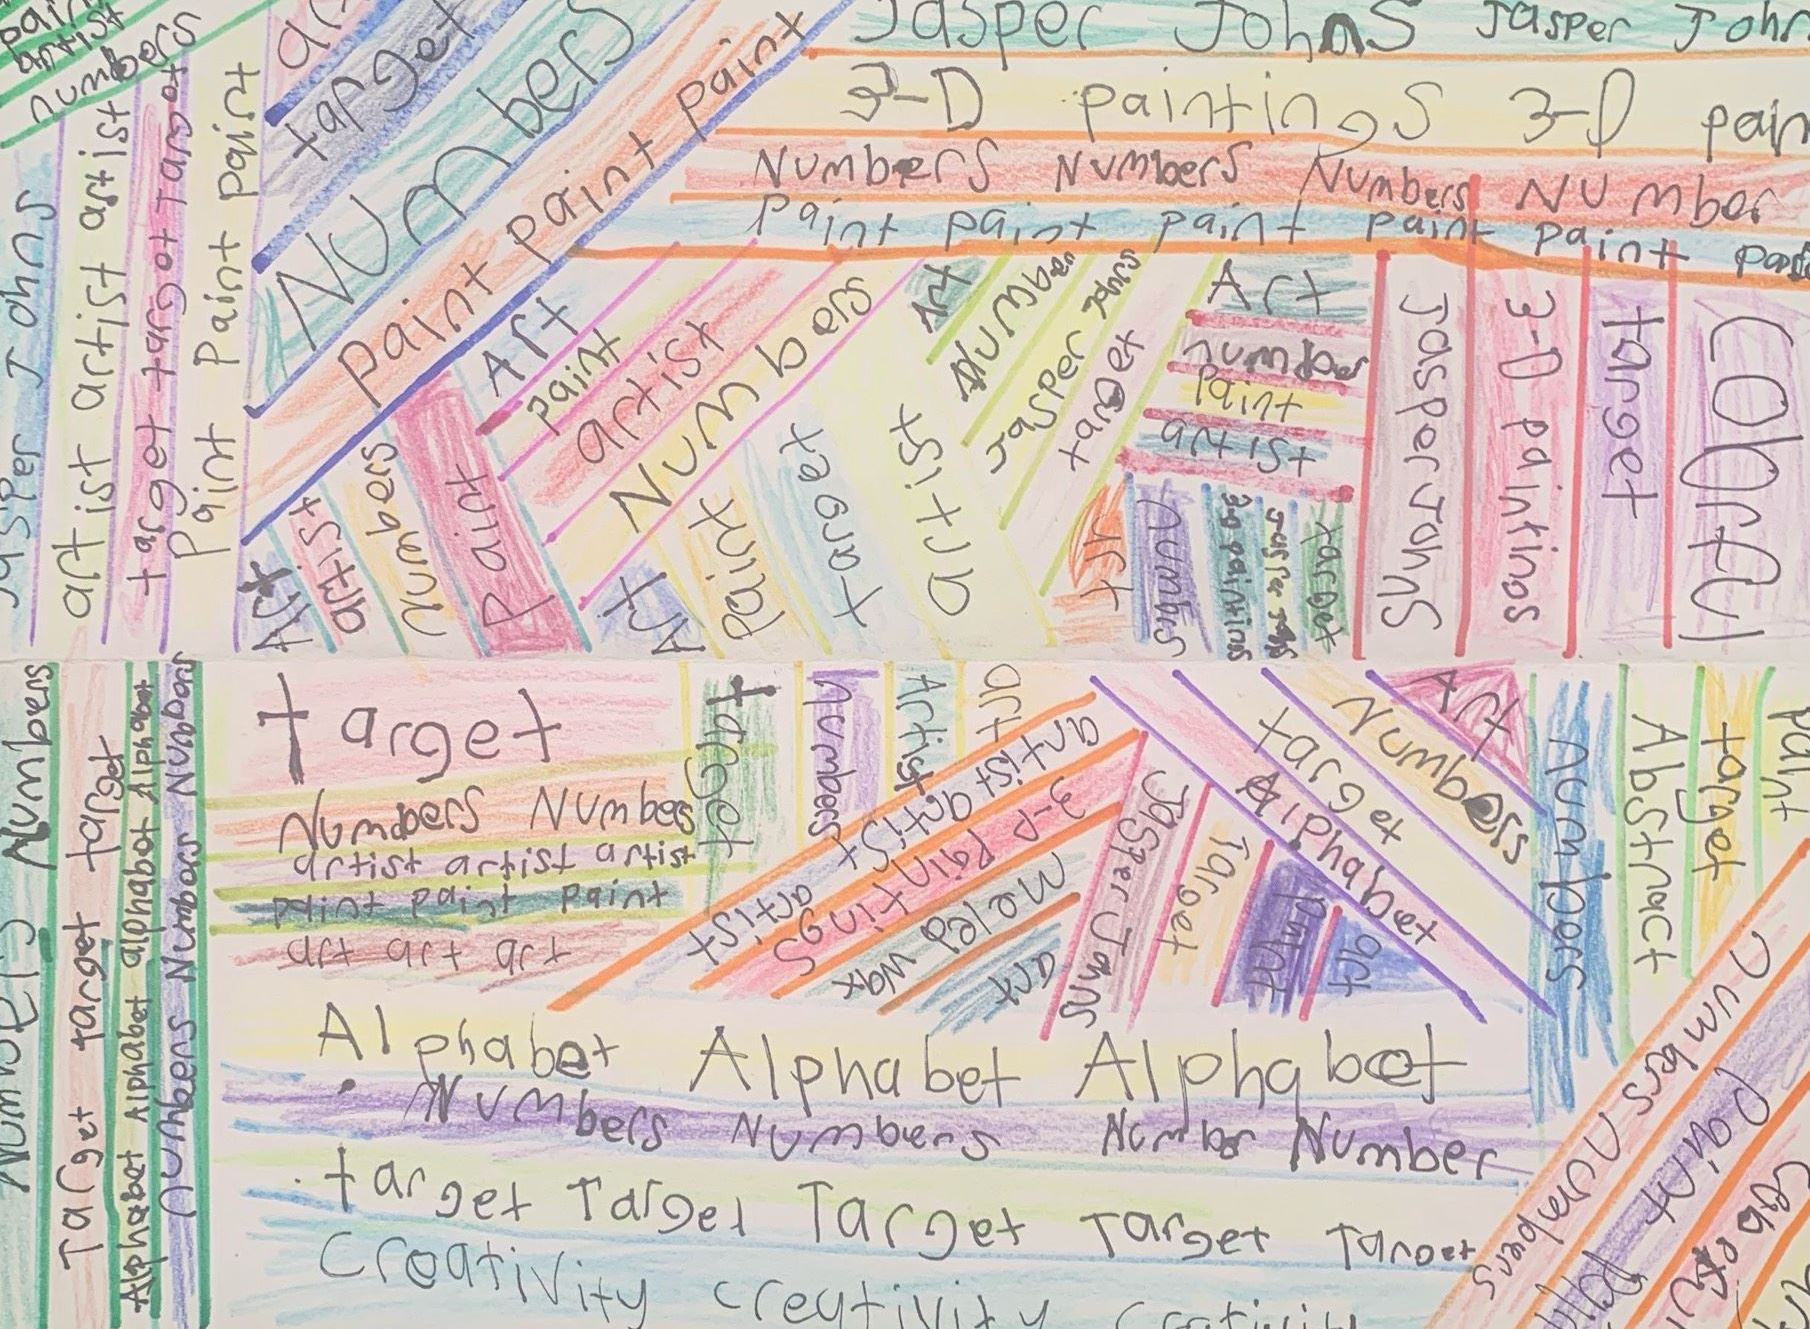 artist
numbers
Jasper Johns
artist artist artist
target target Target
Paint Paint Paint
target
Numbers
paint paint paint paint
Jasper Johns Jasper
3-D paintings 3-D
Numbers Numbers Numbers Number
Paint paint paint paint paint
Art
paint
artist
Numbers
Art
Number
Jasper Johns
target
Art
number
Paint
artist
Jasper Johns
3-D paintings
target
Colorful
Art
artist
Numbers
Paint
Art
Paint
target
artist
art
numbers
3D paintings
target
Numbers Numbers
Target target target
Alphabet Alphabet alphabet Alphabet
Numbers Numbers Numbers
target
Numbers Numbers
artist artist artist
paint paint paint
art art art
target
numbers
Artist
art
artist artist artist artist
3-D Paintings
Melted wax
art
Jasper Johns
Target
Paint
art
Alphabet
target
Numbers
Art
Numbers
Abstract
target
paint
Numbers Numbers
Paint
Alphabet Alphabet Alphabet
Numbers Numbers Number Number
target Target Target Target Target
Creativity creativity